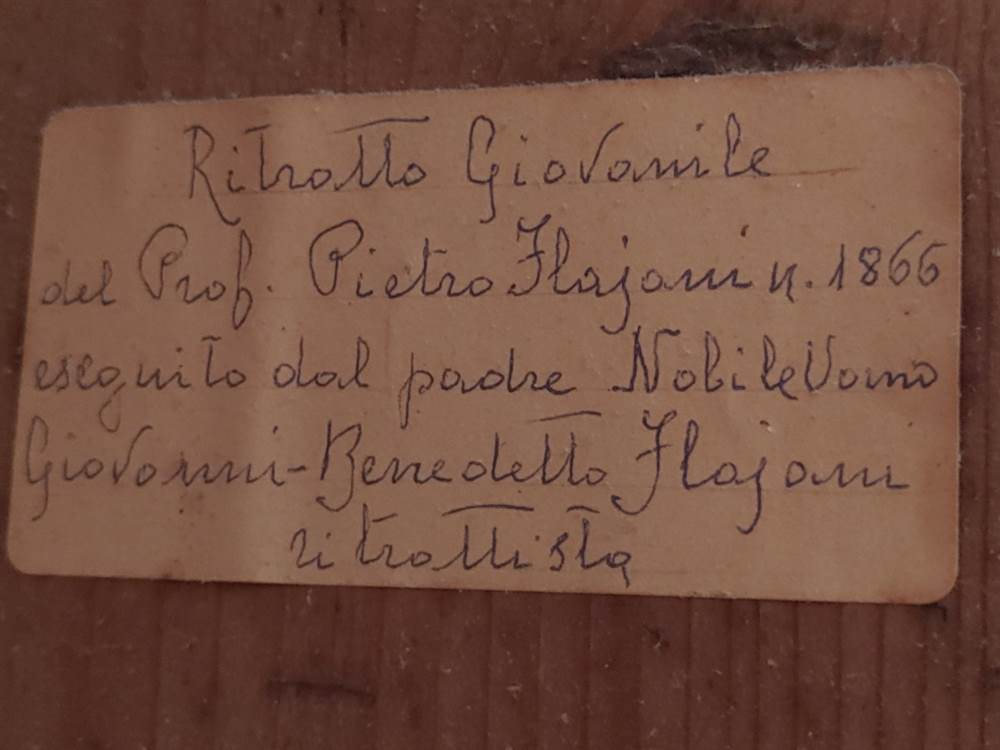 Ritratto Giovanile
del Prof. Pietro Flajani n. 1866
eseguito dal padre NobileUomo
Giovanni-Benedetto Flajani
ritrattista